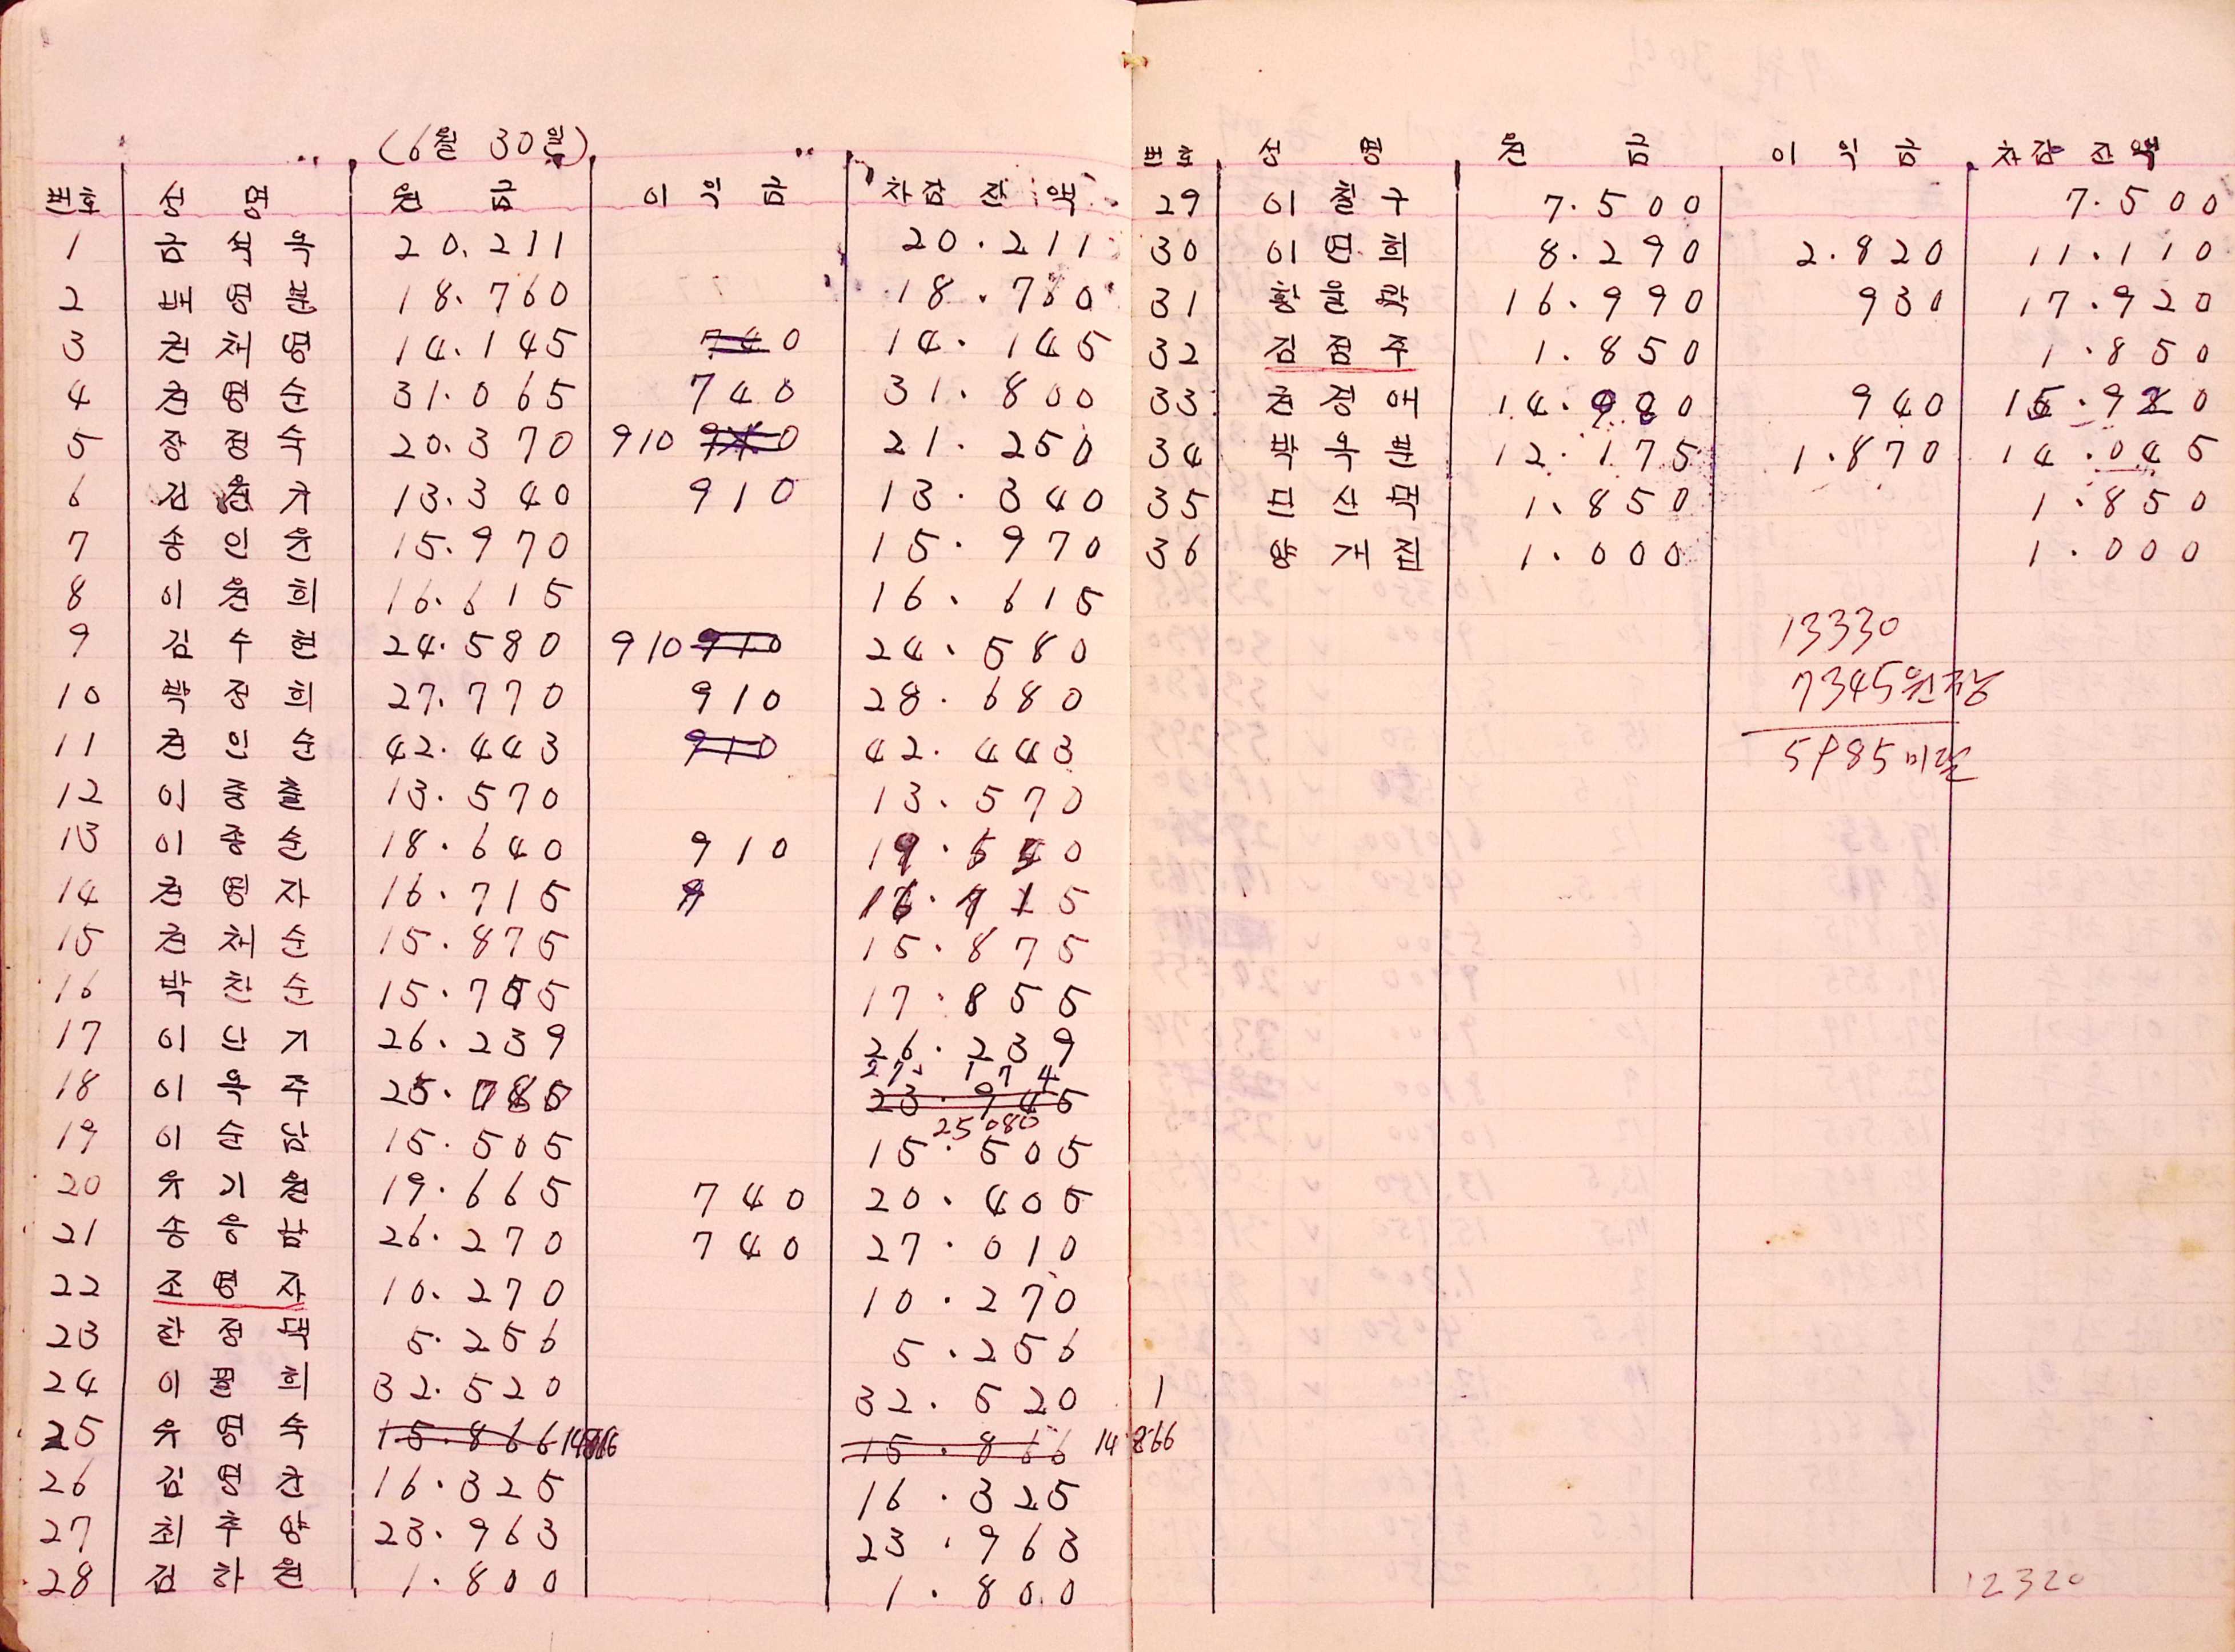 (6월 30일)
번호 성명 원금 이익금 차감잔액
1 금석옥 20.211 20.211
2 배영분 18.760 18.760
3 권채영 14.145 740 14.145
4 권영순 31.065 740 31.800
5 장정숙 20.370 910 21.250
6 김 13.340 910 13.340
7 송인윤 15.970 15.970
8 이원희 16.615 16.615
9 김수현 24.580 910 910 24.580
10 박정희 27.770 910 28.680
11 권인순 42.443 910 42.443
12 이종출 13.570 13.570
13 이종순 18.640 910 19.550
14 권영자 16.715
15 권채순 15.875 15.875
16 박찬순 15.755 17.855
17 이난기 26.239 26.239
27.174
18 이옥주 23.945
25080
19 이순남 15.505 15.505
20 우기원 19.665 740 20.405
21 송응남 26.270 740 27.010
22 조명자 10.270 10.270
23 정 5.256 5.256
24 이 희 32.520 32.520 1
25 우영숙 15.866 15.866 14866
26 김영근 16.325 16.325
27 최추양 23.963 23.963
28 김하원 1.800 1.800
번호 성명 원금 이익금 차감잔액
29 이칠구 7.500 7.500
30 이연희 8.290 2.820 11.110
31 황 16.990 930 17.920
32 김점주 1.850 1.850
33 권정애 940
34 박옥분 12.175 1.870 14.045
35 1.850 1.850
36 양개진 1.000 1.000
13330
7345
5985
12320